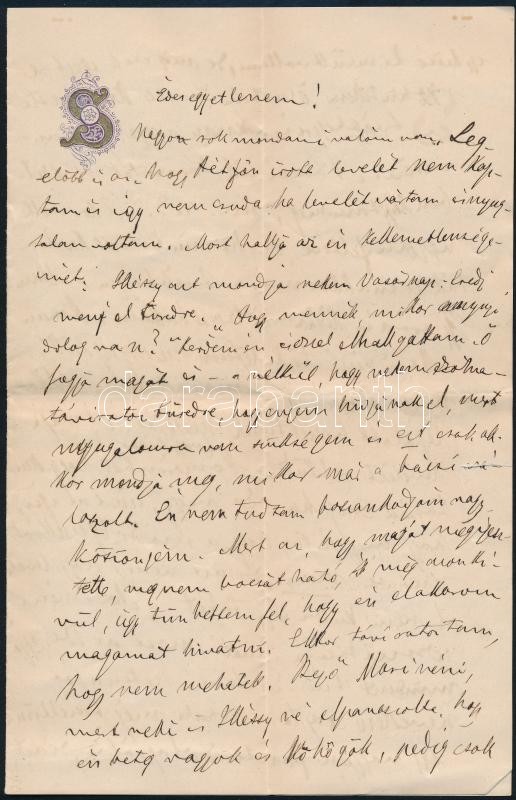 S
Édes egyetlenem!
Nagyon sok mondani valóm van. Leg-
előbb is az, hogy Hétfőn írott levelét nem kap-
tam és így nem csoda ha levelét vártam és nyug-
talan voltam. Most hallja az én kellemetlensége-
imet. Illéssy mondja nekem Vasárnap: Eredj
menj el Füredre. "Hogy mennék, mikor annyi
dolog van?" kérdem én és ezzel elhallgattam. Ő
fogja magát és – a nélkül, hogy nekem szólna
táviratoz Füredre, hogy engem hívjanak el, mert
nyugalomra van szükségem és ezt csak ak-
kor mondja meg, mikor már a bácsi vá-
laszolt. Én nem tudtam bosszankodjam vagy
köszönjem. Mert az, hogy magát megijesz-
tette, meg nem bocsátható, és még azon kí-
vül, úgy tűnhettem fel, hogy én elakarom
magamat hivatni. Ekkor táviratoztam,
hogy nem mehetek. Bejő Mari néni,
mert neki is Illéssy né elpanaszolta, hogy
én beteg vagyok és köhögök, pedig csak
darabanth